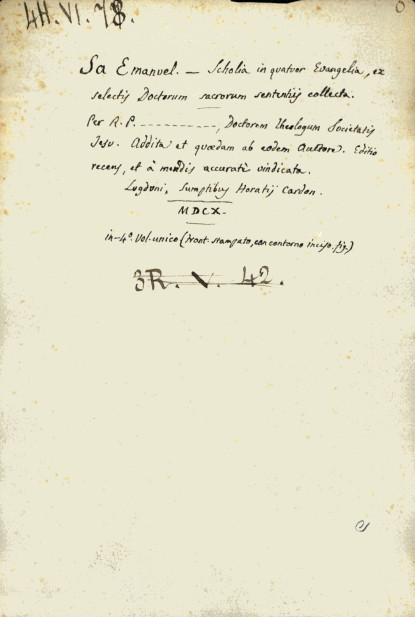 4H.VI.78.
Sa Emanuel. — Scholia in quatuor Evangelia, ex
selectis Doctorum sacrorum sententijs collecta.
Per R. P. - - - - - - - - - - -, Doctorem theologum Societatis
Jesu. Addita et quædam ab eodem Auctore. Editio
recens, et à mendis accuratè vindicata.
Lugduni, Sumptibus Horatij Cardon.
MDCX.
in-4º. Vol. unico (front. stampato, con contorno inciso. fig.)
3R. V. 42.